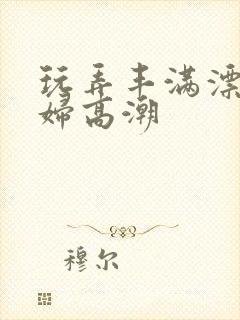 玩弄丰满漂
婦高潮
穆尔